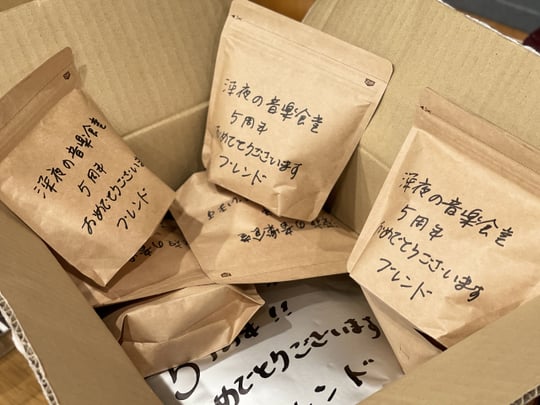 深夜の音楽食堂
5周年
おめでとうございます
ブレンド
深夜の音楽食堂
5周年
おめでとうございます
ブレンド
深夜の音楽食堂
5周年
おめでとうございます
ブレンド
の音楽食堂
!!
めでとうございます
ンド